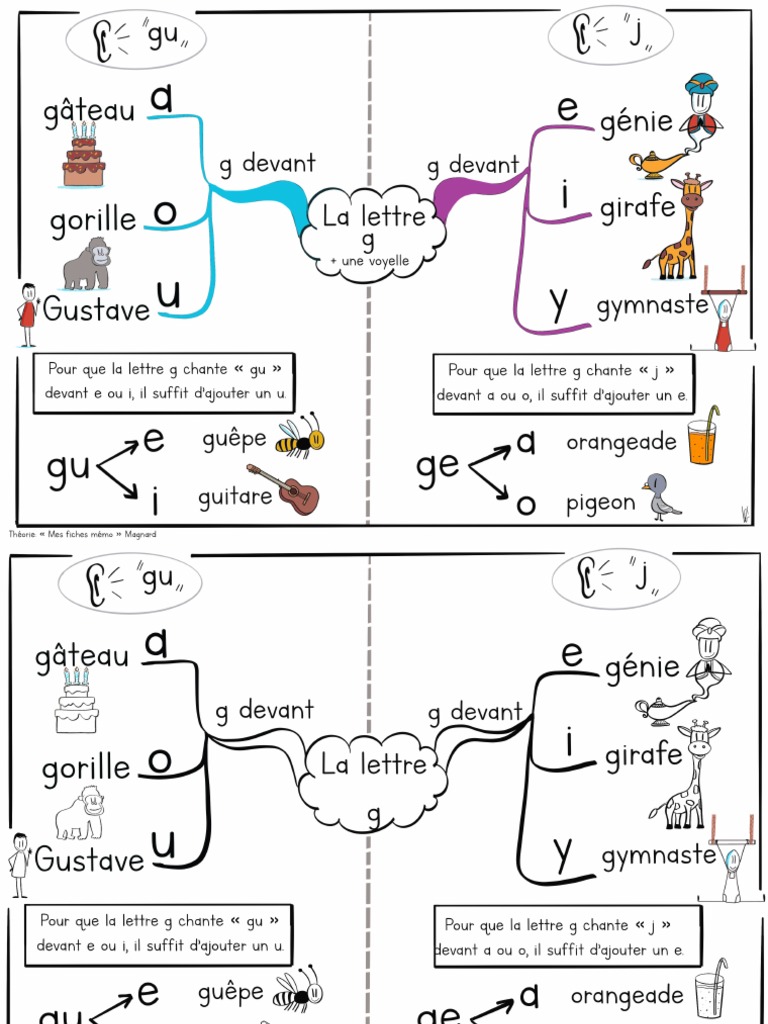 "gu"
"j"
gâteau a
g devant
gorille o
Gustave u
La lettre
g
+ une voyelle
g devant
e génie
i girafe
y gymnaste
Pour que la lettre g chante « gu »
devant e ou i, il suffit d'ajouter un u.
Pour que la lettre g chante « j »
devant a ou o, il suffit d'ajouter un e.
gu
e guêpe
i guitare
ge
a orangeade
o pigeon
Théorie: « Mes fiches mémo » Magnard
"gu"
"j"
gâteau a
g devant
gorille o
Gustave u
La lettre
g
g devant
e génie
i girafe
y gymnaste
Pour que la lettre g chante « gu »
devant e ou i, il suffit d'ajouter un u.
Pour que la lettre g chante « j »
devant a ou o, il suffit d'ajouter un e.
gu
e guêpe
ge
a orangeade